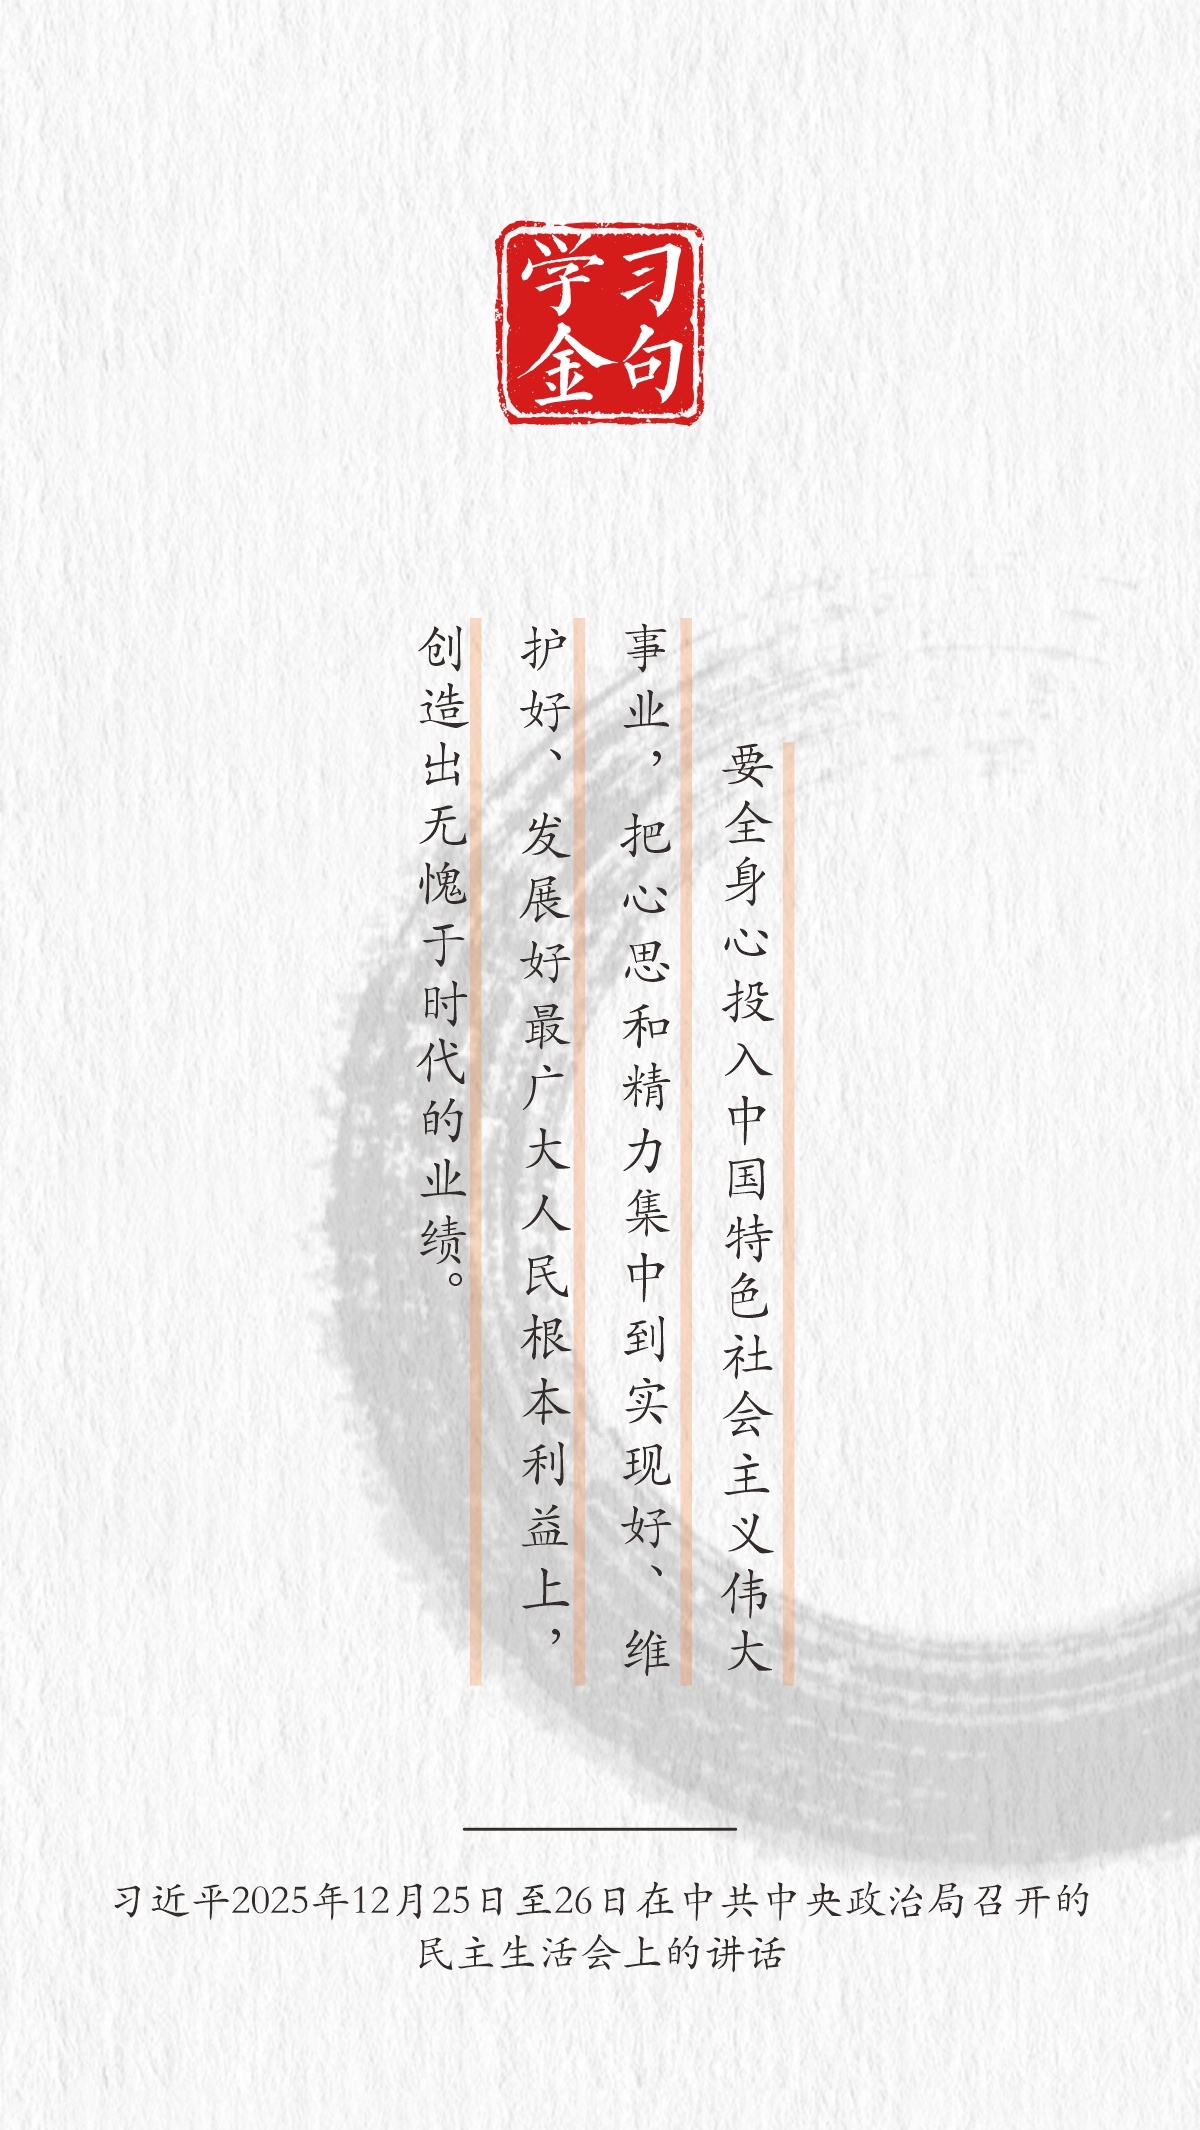 学习
金句
要全身心投入中国特色社会主义伟大
事业，把心思和精力集中到实现好、维
护好、发展好最广大人民根本利益上，
创造出无愧于时代的业绩。
习近平2025年12月25日至26日在中共中央政治局召开的
民主生活会上的讲话